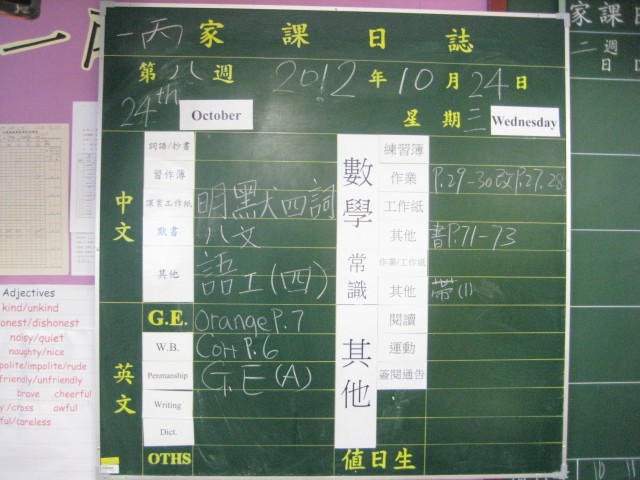 一丙家課日誌
第八週 2012年10月24日
24th October 星期三 Wednesday
中文
詞語/抄書
習作簿
漢書工作紙 明默四詞
默書 八文
其他 語工(四)
英文
G.E. Orange P.7
W.B. Corr P.6
Penmanship G.E(A)
Writing
Dict.
OTHS
數學
練習簿
作業 P.29-30改P.27,28
工作紙
其他 書P.71-73
常識
作業/工作紙
其他 帶(1)
其他
閱讀
運動
簽閱通告
值日生
一丙
Adjectives
kind/unkind
onest/dishonest
noisy/quiet
naughty/nice
polite/impolite/rude
friendly/unfriendly
brave cheerful
y/cross awful
ful/careless
家課
二週
日